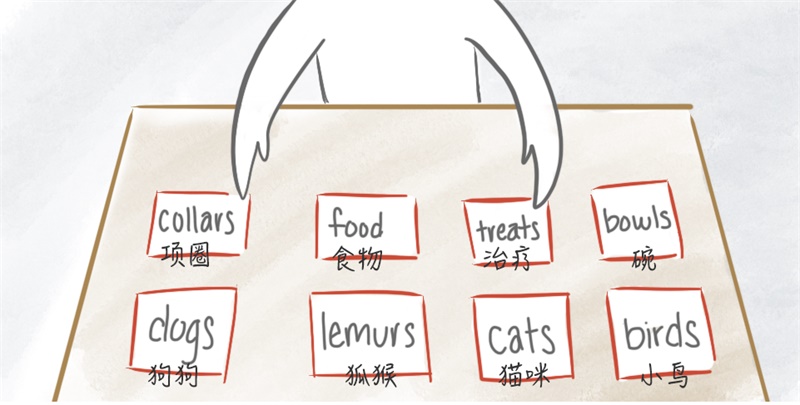 collars
项圈
food
食物
treats
治疗
bowls
碗
dogs
狗狗
lemurs
狐猴
cats
猫咪
birds
小鸟